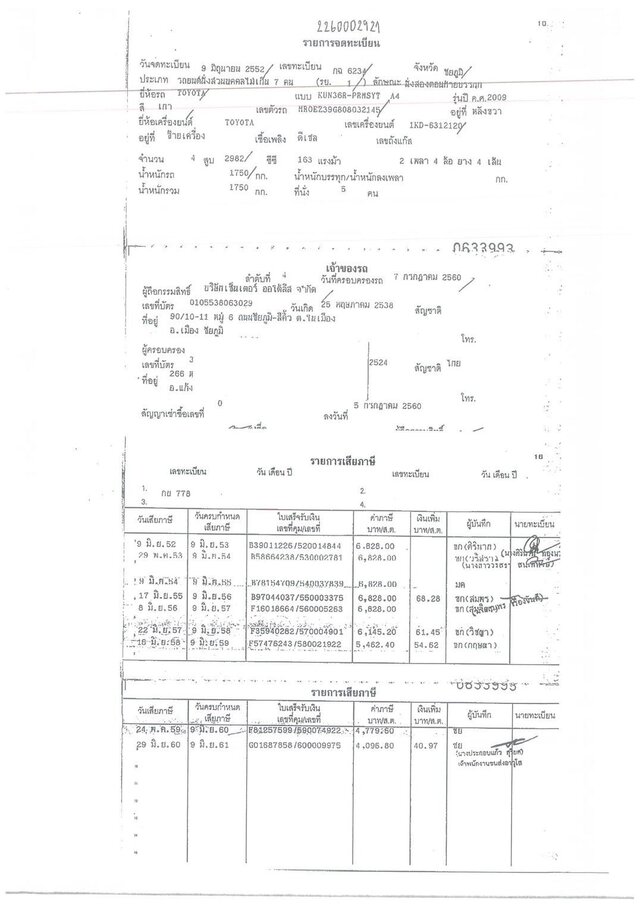 2260002921
รายการจดทะเบียน
วันจดทะเบียน 9 มิถุนายน 2552 เลขทะเบียน กฉ 6234 จังหวัด ชัยภูมิ
ประเภท รถยนต์นั่งส่วนบุคคลไม่เกิน 7 คน (รย. 1) ลักษณะ นั่งสองตอนท้ายบรรทุก
ยี่ห้อรถ TOYOTA แบบ KUN36R-PRMSYT A4 รุ่นปี ค.ศ.2009
สี เทา เลขตัวรถ MR0EZ39G808032145 อยู่ที่ หลังขวา
ยี่ห้อเครื่องยนต์ TOYOTA เลขเครื่องยนต์ 1KD-6312120
อยู่ที่ ซ้ายเครื่อง เชื้อเพลิง ดีเซล เลขถังแก๊ส
จำนวน 4 สูบ 2982 ซีซี 163 แรงม้า 2 เพลา 4 ล้อ ยาง 4 เส้น
น้ำหนักรถ 1750 กก. น้ำหนักบรรทุก/น้ำหนักลงเพลา กก.
น้ำหนักรวม 1750 กก. ที่นั่ง 5 คน
0633993
เจ้าของรถ
ลำดับที่ 4 วันที่ครอบครองรถ 7 กรกฎาคม 2560
ผู้ถือกรรมสิทธิ์
เลขที่บัตร 0105538063029 วันเกิด 25 พฤษภาคม 2538 สัญชาติ
ที่อยู่ 90/10-11 หมู่ 6 ถนนชัยภูมิ-สีคิ้ว ต.ในเมือง
อ.เมือง ชัยภูมิ
โทร.
ผู้ครอบครอง
เลขที่บัตร 3 2524 สัญชาติ ไทย
ที่อยู่ 266 ต
อ.แก้ง
โทร.
สัญญาเช่าซื้อเลขที่ 0 ลงวันที่ 5 กรกฎาคม 2560
รายการเสียภาษี 16
เลขทะเบียน วัน เดือน ปี เลขทะเบียน วัน เดือน ปี
1. กย 778 2.
3. 4.
วันเสียภาษี วันครบกำหนดเสียภาษี ใบเสร็จรับเงิน เลขที่คุม/เลขที่ ค่าภาษี บาท/ส.ต. เงินเพิ่ม บาท/ส.ต. ผู้บันทึก นายทะเบียน
9 มิ.ย.52 9 มิ.ย.53 B39011226/520014844 6,828.00
29 พ.ค.53 9 มิ.ย.54 B58664238/530002781 6,828.00
9 มิ.ย.54 9 มิ.ย.55 6,828.00 มด
17 มิ.ย.55 9 มิ.ย.56 B97044037/550003375 6,828.00 68.28 ชก(สมพร)
8 มิ.ย.56 9 มิ.ย.57 F16018664/560005263 6,828.00
22 มิ.ย.57 9 มิ.ย.58 F35940262/570004901 6,145.20 61.45 ชก(วิชญา)
16 มิ.ย.58 9 มิ.ย.59 F57475243/580021922 5,462.40 54.62 ชก(กฤษดา)
รายการเสียภาษี 0633995
วันเสียภาษี วันครบกำหนดเสียภาษี ใบเสร็จรับเงิน เลขที่คุม/เลขที่ ค่าภาษี บาท/ส.ต. เงินเพิ่ม บาท/ส.ต. ผู้บันทึก นายทะเบียน
24 พ.ค.59 9 มิ.ย.60 F81257599/590074922 4,779.60 ชย
29 มิ.ย.60 9 มิ.ย.61 G01687858/600009975 4,096.80 40.97 ชย
เจ้าพนักงานขนส่งอาวุโส